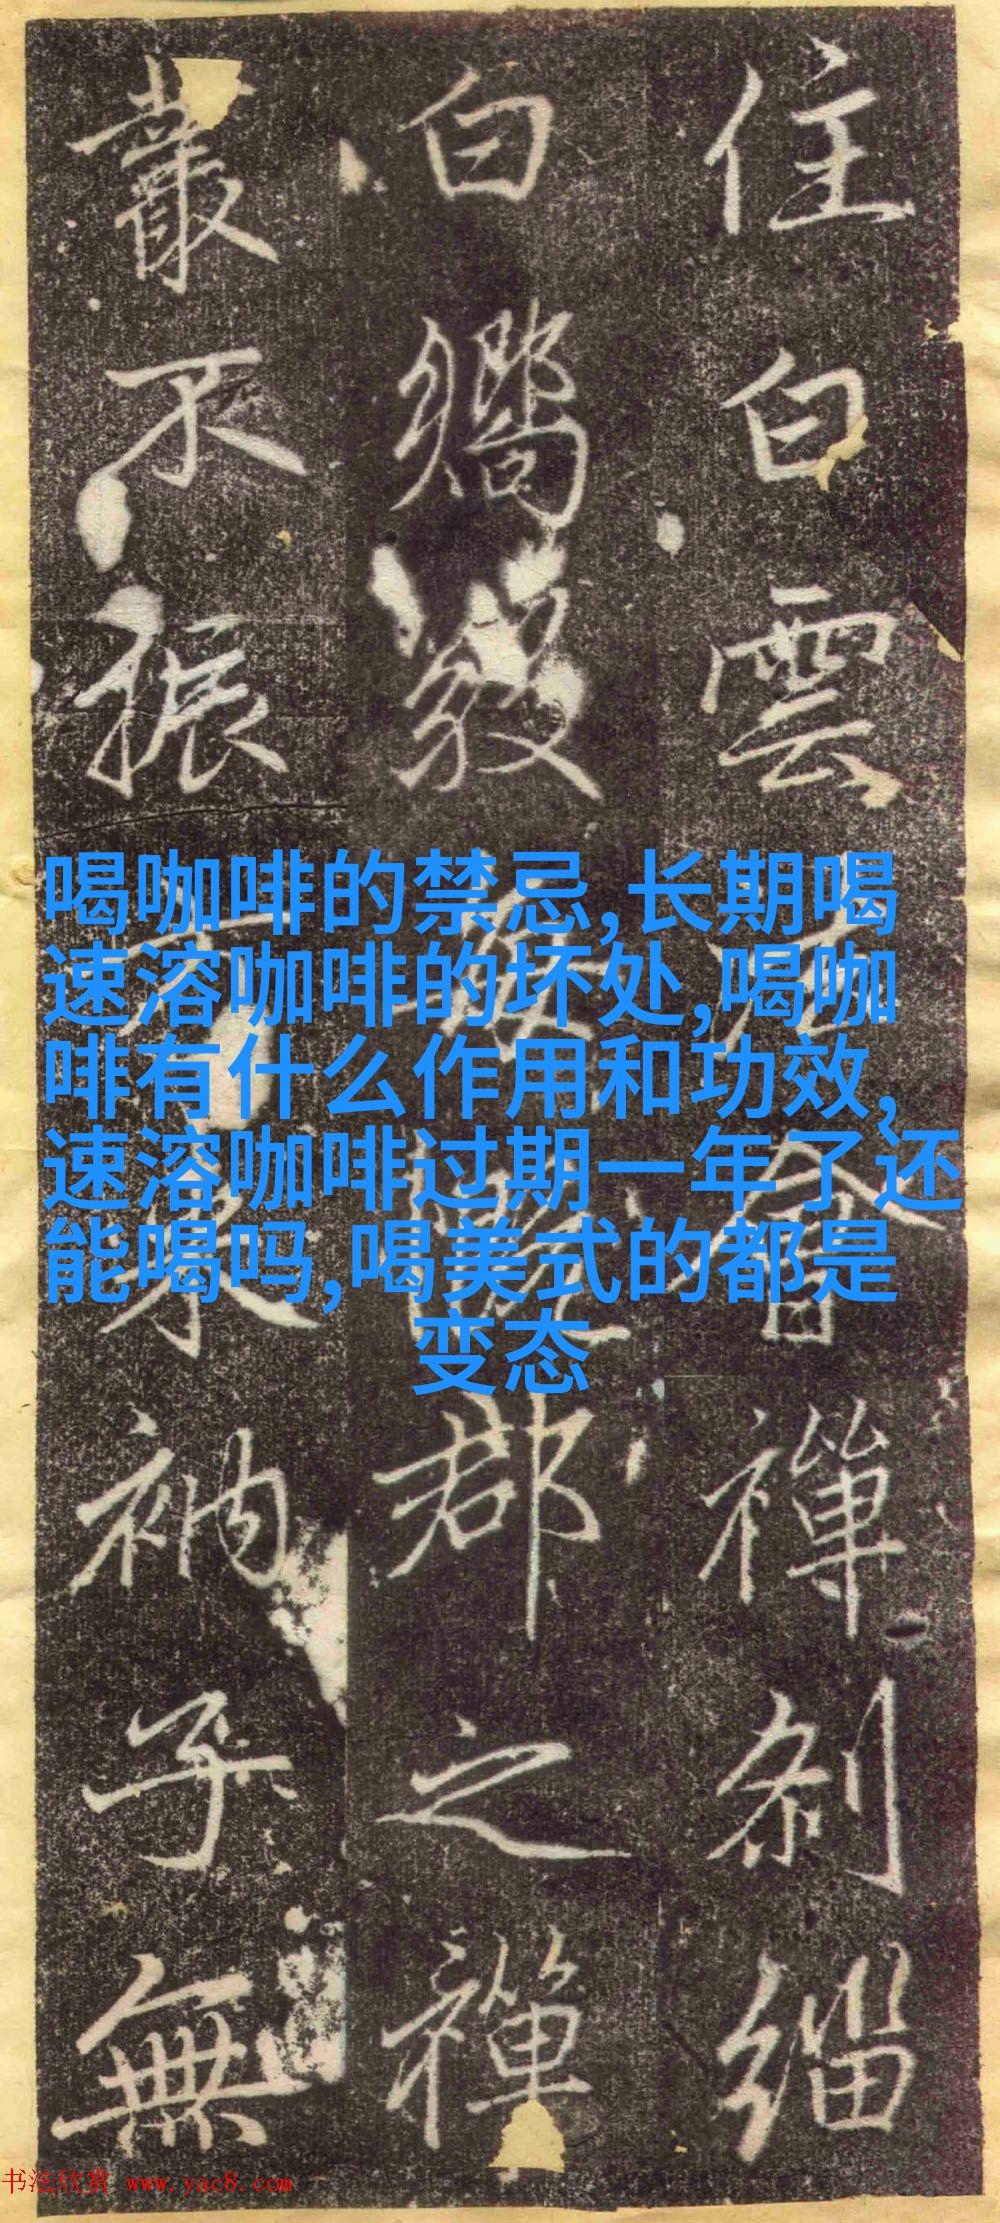 住白雲
會禪剎緇
白鸐毅
郡之禪
叢不振
衲子無
喝咖啡的禁忌,长期喝
速溶咖啡的坏处,喝咖
啡有什么作用和功效,
速溶咖啡过期一年了还
能喝吗,喝美式的都是
变态
书法欣赏 www.yac8.com